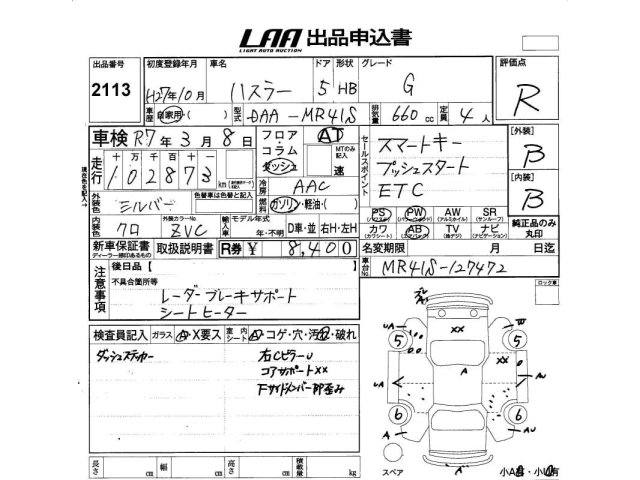 LAA 出品申込書
LIGHT AUTO AUCTION
出品番号 初度登録年月 車名 ドア 形状 グレード 評価点
2113 H27年10月 ハスラー 5 HB G R
車歴 自家用・( ) 型式 DAA-MR41S 排気量 660 cc 定員 4 人
車検 R7年 3月 8日 フロア AT
コラム
ダッシュ
MTのみ記入
速
セールスポイント
スマートキー
プッシュスタート
ETC
[外装]
B
[内装]
B
走行 十 万 千 百 十
1 0 2 8 7 3 km
冷房 AAC
外装色 シルバー 色替車は色替と記入 燃料 ガソリン・軽油・( )
内装色 クロ 外装カラーNo. ZVC 輸入車 モデル年式 年・不明 D車・並 右H・左H
PS PW AW SR
(パワステ) (パワーウィンド) (アルミホイル) (サンルーフ)
カワ AB TV ナビ
(エアバック) (ナビゲーション)
純正品のみ丸印
新車保証書 取扱説明書 R券 ¥ 8,400
ディーラー捺印あるもの
名変期限 月 日迄
車台No. MR41S-127472
注意事項
後日品[ ]
不具合箇所等
レーダーブレーキサポート
シートヒーター
ロック車
検査員記入 ガラス A・X要ス 室内シート A・コゲ・穴・汚れ・破れ
ダッシュステッカー
右CピラーU
コアサポートXX
下サイドメンバー部歪み
XX
5 5
XX
A
6 6
A
スペア
長さ cm 幅 cm 高さ cm 積載量 kg